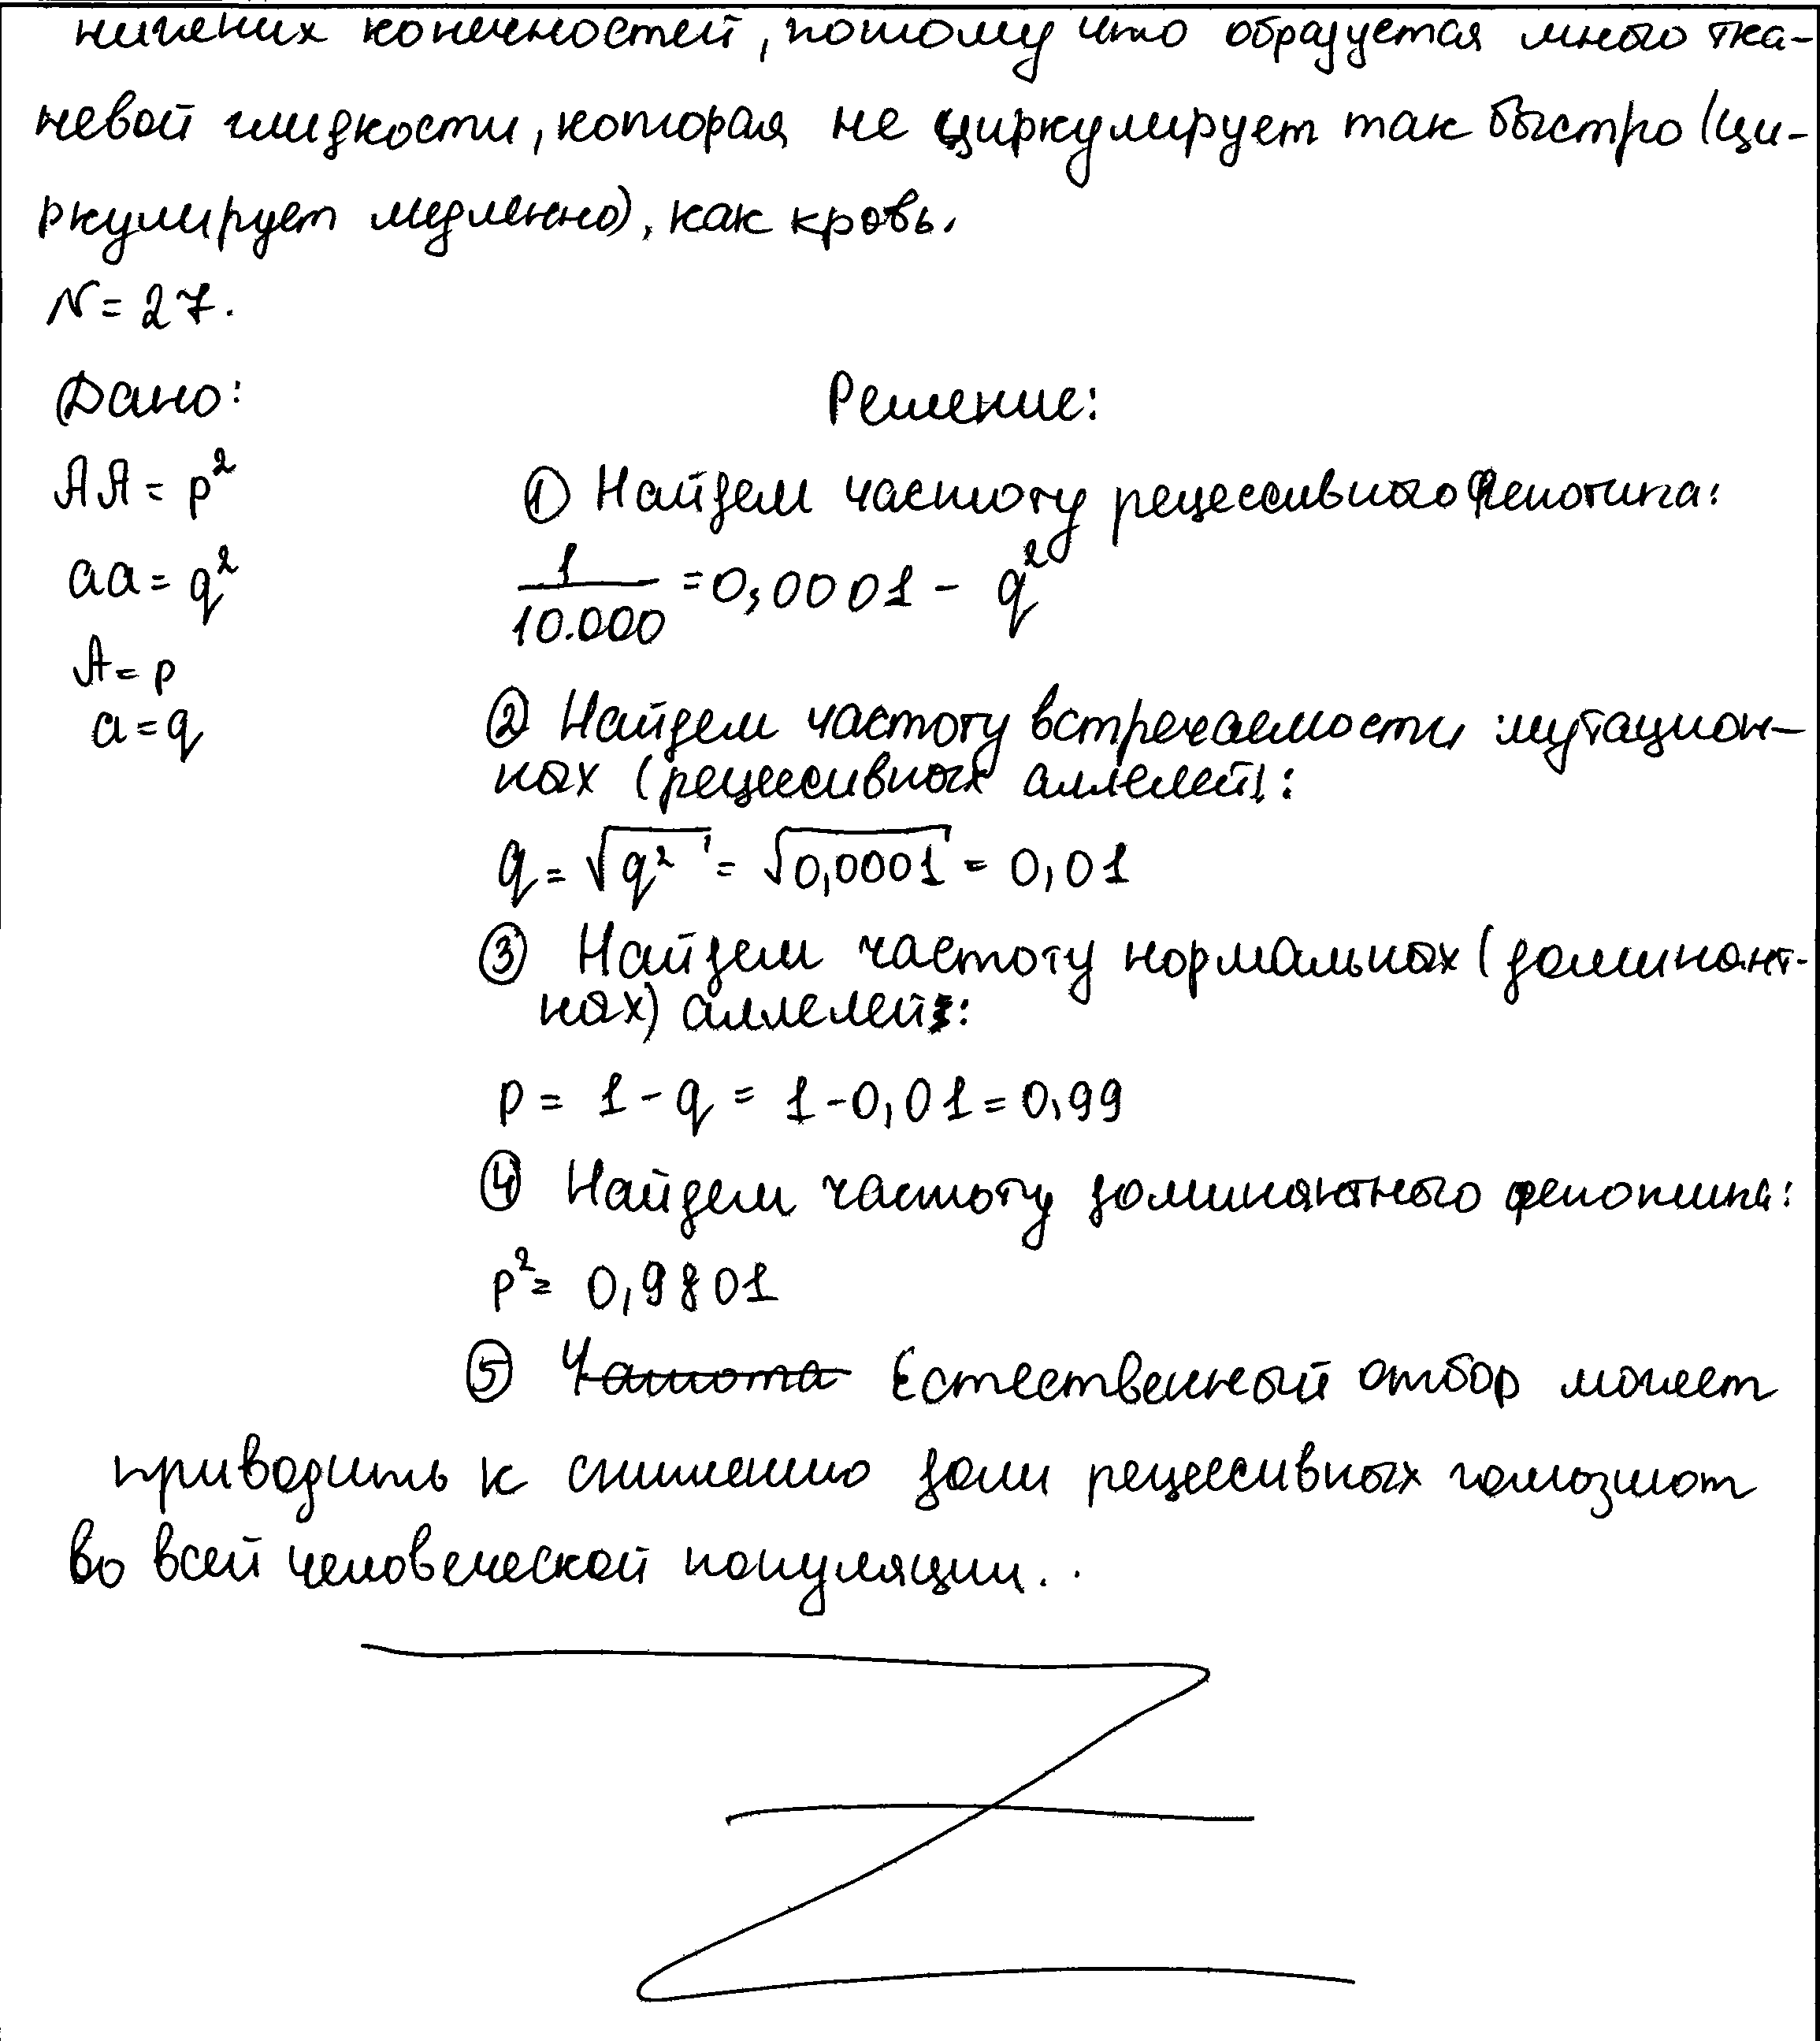 нижних конечностей, потому что образуется много тка-
невой жидкости, которая не циркулирует так быстро (ци-
ркулирует медленно), как кровь.
N = 27.
Дано: Решение:
AA = p² ① Найдем частоту рецессивного фенотипа:
aa = q² 1/10.000 = 0,0001 - q²
A = p
a = q ② Найдем частоту встречаемости мутацион-
ных (рецессивных аллелей):
q = √q² = √0,0001 = 0,01
③ Найдем частоту нормальных (доминант-
ных) аллелей:
p = 1 - q = 1 - 0,01 = 0,99
④ Найдем частоту доминантного фенотипа:
p² = 0,9801
⑤ Частота Естественный отбор может
приводить к снижению доли рецессивных гомозигот
во всей человеческой популяции..